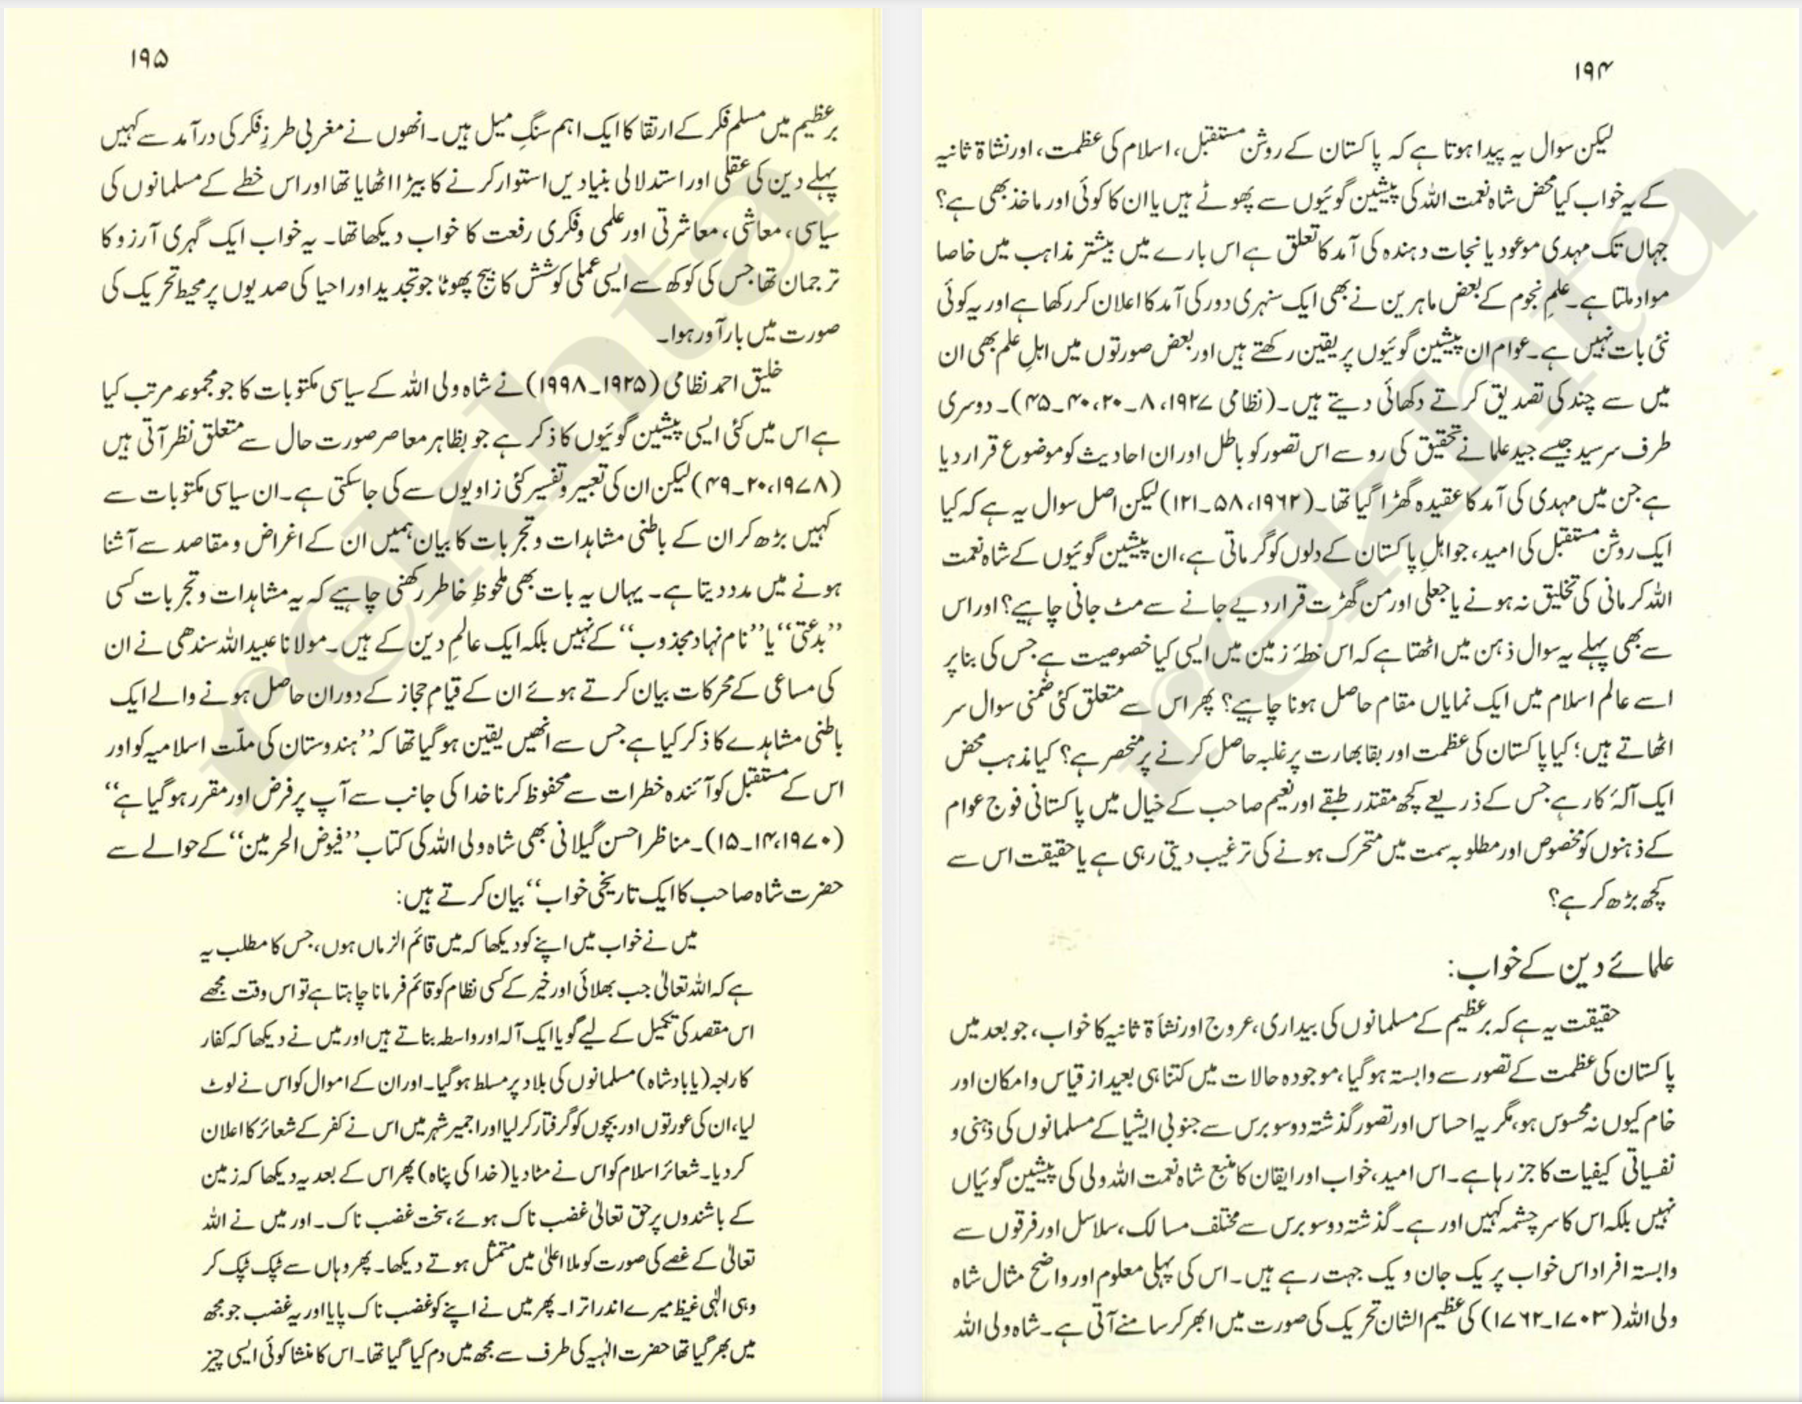 ۱۹۴
لیکن سوال یہ پیدا ہوتا ہے کہ پاکستان کے روشن مستقبل، اسلام کی عظمت، اور نشاۃ ثانیہ
کے یہ خواب کیا محض شاہ نعمت اللہ کی پیشین گوئیوں سے پھوٹے ہیں یا ان کا کوئی اور ماخذ بھی ہے؟
جہاں تک مہدی موعود یا نجات دہندہ کی آمد کا تعلق ہے اس بارے میں بیشتر مذاہب میں خاصا
مواد ملتا ہے۔ علمِ نجوم کے بعض ماہرین نے بھی ایک سنہری دور کی آمد کا اعلان کر رکھا ہے اور یہ کوئی
نئی بات نہیں ہے۔ عوام ان پیشین گوئیوں پر یقین رکھتے ہیں اور بعض صورتوں میں اہلِ علم بھی ان
میں سے چند کی تصدیق کرتے دکھائی دیتے ہیں۔ (نظامی ۱۹۲۷، ۸۔۲۰، ۴۰۔۴۵)۔ دوسری
طرف سرسید جیسے جید علما نے تحقیق کی رو سے اس تصور کو باطل اور ان احادیث کو موضوع قرار دیا
ہے جن میں مہدی کی آمد کا عقیدہ گھڑا گیا تھا۔ (۱۹۶۲، ۵۸۔۱۲۱) لیکن اصل سوال یہ ہے کہ کیا
ایک روشن مستقبل کی امید، جو اہلِ پاکستان کے دلوں کو گرماتی ہے، ان پیشین گوئیوں کے شاہ نعمت
اللہ کرمانی کی تخلیق نہ ہونے یا جعلی اور من گھڑت قرار دیے جانے سے مٹ جانی چاہیے؟ اور اس
سے بھی پہلے یہ سوال ذہن میں اٹھتا ہے کہ اس خطۂ زمین میں ایسی کیا خصوصیت ہے جس کی بنا پر
اسے عالم اسلام میں ایک نمایاں مقام حاصل ہونا چاہیے؟ پھر اس سے متعلق کئی ضمنی سوال سر
اٹھاتے ہیں؛ کیا پاکستان کی عظمت اور بقا بھارت پر غلبہ حاصل کرنے پر منحصر ہے؟ کیا مذہب محض
ایک آلۂ کار ہے جس کے ذریعے کچھ مقتدر طبقے اور نعیم صاحب کے خیال میں پاکستانی فوج عوام
کے ذہنوں کو مخصوص اور مطلوبہ سمت میں متحرک ہونے کی ترغیب دیتی رہی ہے یا حقیقت اس سے
کچھ بڑھ کر ہے؟
علمائے دین کے خواب:
حقیقت یہ ہے کہ برعظیم کے مسلمانوں کی بیداری، عروج اور نشاۃ ثانیہ کا خواب، جو بعد میں
پاکستان کی عظمت کے تصور سے وابستہ ہو گیا، موجودہ حالات میں کتنا ہی بعید از قیاس و امکان اور
خام کیوں نہ محسوس ہو، مگر یہ احساس اور تصور گذشتہ دو سو برس سے جنوبی ایشیا کے مسلمانوں کی ذہنی و
نفسیاتی کیفیات کا جز رہا ہے۔ اس امید، خواب اور ایقان کا منبع شاہ نعمت اللہ ولی کی پیشین گوئیاں
نہیں بلکہ اس کا سرچشمہ کہیں اور ہے۔ گذشتہ دو سو برس سے مختلف مسالک، سلاسل اور فرقوں سے
وابستہ افراد اس خواب پر یک جان و یک جہت رہے ہیں۔ اس کی پہلی معلوم اور واضح مثال شاہ
ولی اللہ (۱۷۰۳۔۱۷۶۲) کی عظیم الشان تحریک کی صورت میں ابھر کر سامنے آتی ہے۔ شاہ ولی اللہ
۱۹۵
برعظیم میں مسلم فکر کے ارتقا کا ایک اہم سنگِ میل ہیں۔ انھوں نے مغربی طرزِ فکر کی درآمد سے کہیں
پہلے دین کی عقلی اور استدلالی بنیادیں استوار کرنے کا بیڑا اٹھایا تھا اور اس خطے کے مسلمانوں کی
سیاسی، معاشی، معاشرتی اور علمی و فکری رفعت کا خواب دیکھا تھا۔ یہ خواب ایک گہری آرزو کا
ترجمان تھا جس کی کوکھ سے ایسی عملی کوشش کا بیج پھوٹا جو تجدید اور احیا کی صدیوں پر محیط تحریک کی
صورت میں بارآور ہوا۔
خلیق احمد نظامی (۱۹۲۵۔۱۹۹۸) نے شاہ ولی اللہ کے سیاسی مکتوبات کا جو مجموعہ مرتب کیا
ہے اس میں کئی ایسی پیشین گوئیوں کا ذکر ہے جو بظاہر معاصر صورت حال سے متعلق نظر آتی ہیں
(۱۹۷۸، ۲۰۔۴۹) لیکن ان کی تعبیر و تفسیر کئی زاویوں سے کی جا سکتی ہے۔ ان سیاسی مکتوبات سے
کہیں بڑھ کر ان کے باطنی مشاہدات و تجربات کا بیان ہمیں ان کے اغراض و مقاصد سے آشنا
ہونے میں مدد دیتا ہے۔ یہاں یہ بات بھی ملحوظِ خاطر رکھنی چاہیے کہ یہ مشاہدات و تجربات کسی
”بدعتی“ یا ”نام نہاد مجذوب“ کے نہیں بلکہ ایک عالمِ دین کے ہیں۔ مولانا عبید اللہ سندھی نے ان
کی مساعی کے محرکات بیان کرتے ہوئے ان کے قیامِ حجاز کے دوران حاصل ہونے والے ایک
باطنی مشاہدے کا ذکر کیا ہے جس سے انھیں یقین ہو گیا تھا کہ ”ہندوستان کی ملّت اسلامیہ کو اور
اس کے مستقبل کو آئندہ خطرات سے محفوظ کرنا خدا کی جانب سے آپ پر فرض اور مقرر ہو گیا ہے“
(۱۹۷۰، ۱۴۔۱۵)۔ مناظر احسن گیلانی بھی شاہ ولی اللہ کی کتاب ”فیوض الحرمین“ کے حوالے سے
حضرت شاہ صاحب کا ایک تاریخی خواب“ بیان کرتے ہیں:
میں نے خواب میں اپنے کو دیکھا کہ میں قائم الزماں ہوں، جس کا مطلب یہ
ہے کہ اللہ تعالیٰ جب بھلائی اور خیر کے کسی نظام کو قائم فرمانا چاہتا ہے تو اس وقت مجھے
اس مقصد کی تکمیل کے لیے گویا ایک آلہ اور واسطہ بناتے ہیں اور میں نے دیکھا کہ کفار
کا راجہ (یا بادشاہ) مسلمانوں کی بلاد پر مسلط ہو گیا۔ اور ان کے اموال کو اس نے لوٹ
لیا، ان کی عورتوں اور بچوں کو گرفتار کر لیا اور اجمیر شہر میں اس نے کفر کے شعائر کا اعلان
کر دیا۔ شعائر اسلام کو اس نے مٹا دیا (خدا کی پناہ) پھر اس کے بعد یہ دیکھا کہ زمین
کے باشندوں پر حق تعالیٰ غضب ناک ہوئے، سخت غضب ناک۔ اور میں نے اللہ
تعالیٰ کے غصے کی صورت کو ملا اعلیٰ میں متمثل ہوتے دیکھا۔ پھر وہاں سے ٹپک ٹپک کر
وہی الٰہی غیظ میرے اندر اترا۔ پھر میں نے اپنے کو غضب ناک پایا اور یہ غضب جو مجھ
میں بھر گیا تھا حضرت الٰہیہ کی طرف سے مجھ میں دم کیا گیا تھا۔ اس کا منشا کوئی ایسی چیز
rekhta
rekhta